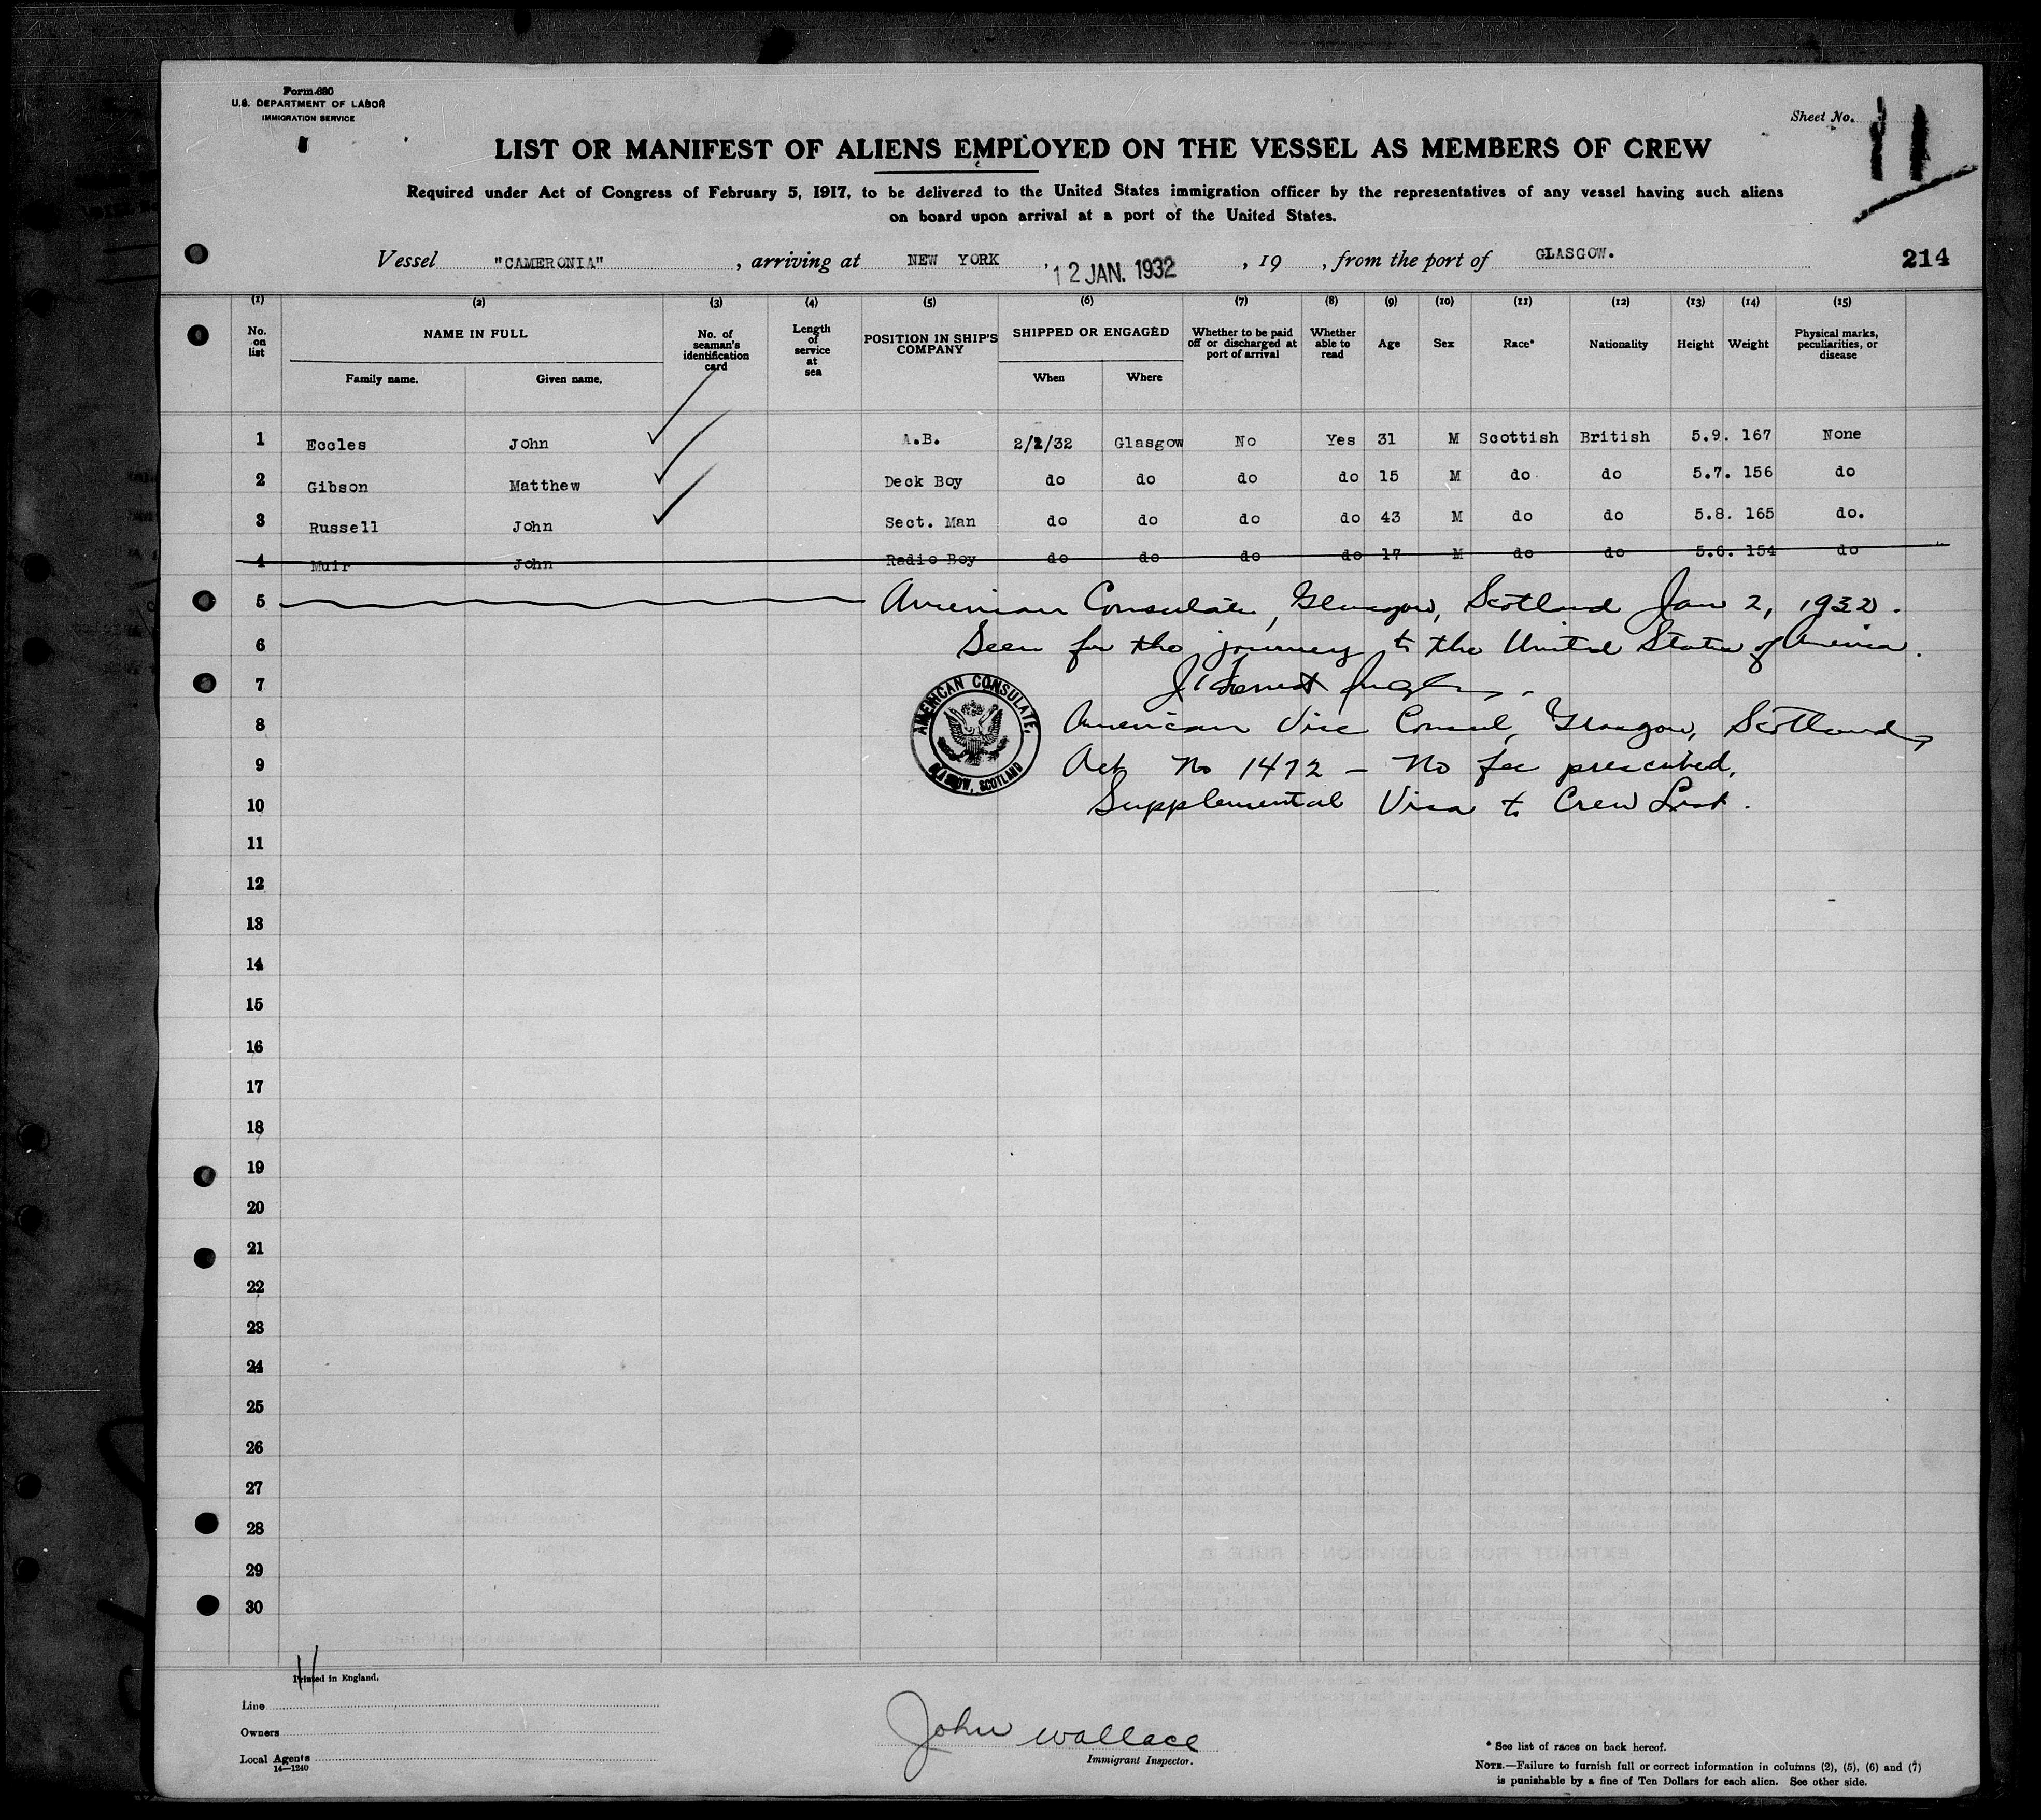 Form 680
U.S. DEPARTMENT OF LABOR
IMMIGRATION SERVICE
Sheet No. 11
LIST OR MANIFEST OF ALIENS EMPLOYED ON THE VESSEL AS MEMBERS OF CREW
Required under Act of Congress of February 5, 1917, to be delivered to the United States immigration officer by the representatives of any vessel having such aliens
on board upon arrival at a port of the United States.
Vessel "CAMERONIA", arriving at NEW YORK, 12 JAN. 1932, 19 , from the port of GLASGOW. 214
(1) (2) (3) (4) (5) (6) (7) (8) (9) (10) (11) (12) (13) (14) (15)
No. on list NAME IN FULL No. of seaman's identification card Length of service at sea POSITION IN SHIP'S COMPANY SHIPPED OR ENGAGED Whether to be paid off or discharged at port of arrival Whether able to read Age Sex Race* Nationality Height Weight Physical marks, peculiarities, or disease
Family name. Given name. When Where
1 Eccles John A.B. 2/1/32 Glasgow No Yes 31 M Scottish British 5.9. 167 None
2 Gibson Matthew Deck Boy do do do do 15 M do do 5.7. 156 do
3 Russell John Sect. Man do do do do 43 M do do 5.8. 165 do.
4 Muir John Radio Boy do do do do 17 M do do 5.6. 154 do
5 American Consulate, Glasgow, Scotland Jan 2, 1932.
6 Seen for the journey to the United States of America.
7
8 American Vice Consul, Glasgow, Scotland,
9 Act No 1472 – No fee prescribed.
10 Supplemental Visa to Crew List.
AMERICAN CONSULATE,
GLASGOW, SCOTLAND
11
12
13
14
15
16
17
18
19
20
21
22
23
24
25
26
27
28
29
30
Printed in England.
Line
Owners
Local Agents
14—1240
John Wallace
Immigrant Inspector.
* See list of races on back hereof.
NOTE.—Failure to furnish full or correct information in columns (2), (5), (6) and (7)
is punishable by a fine of Ten Dollars for each alien. See other side.